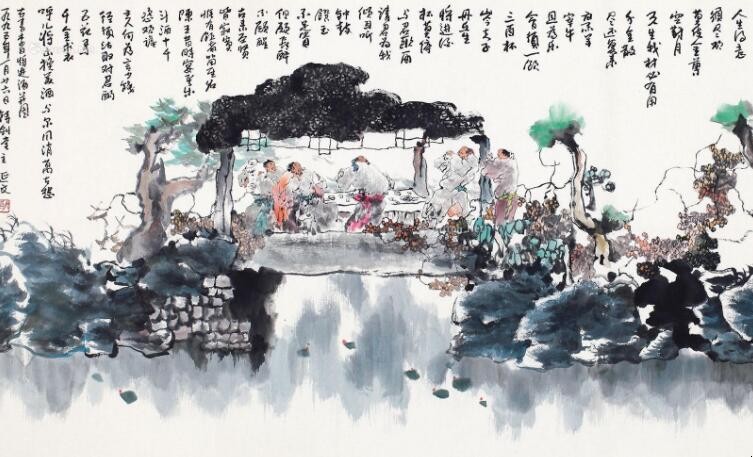 人生得意
须尽欢
莫使金樽
空对月
天生我材必有用
千金散
尽还复来
烹羊
宰牛
且为乐
会须一饮
三百杯
岑夫子
丹丘生
将进酒
杯莫停
与君歌一曲
请君为我
倾耳听
钟鼓
馔玉
不足贵
但愿长醉
不愿醒
古来圣贤
皆寂寞
惟有饮者留其名
陈王昔时宴平乐
斗酒十千
恣欢谑
主人何为言少钱
径须沽取对君酌
五花马
千金裘
呼儿将出换美酒与尔同消万古愁
将进酒
一九九五年一月廿六日